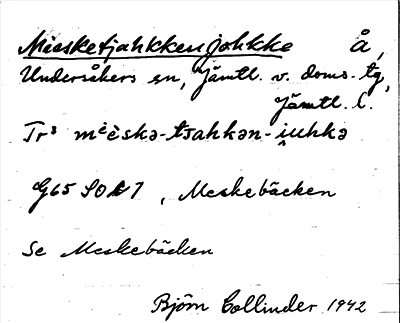 Miesketjahkkenjohkke å,
Undersåkers sn, Jämtl. v. doms. tg,
Jämtl. l.
Tr³ mèèskə-tsahkən-i̭uhkə
G65 SO 1, Meskebäcken
Se Meskebäcken
Björn Collinder 1942